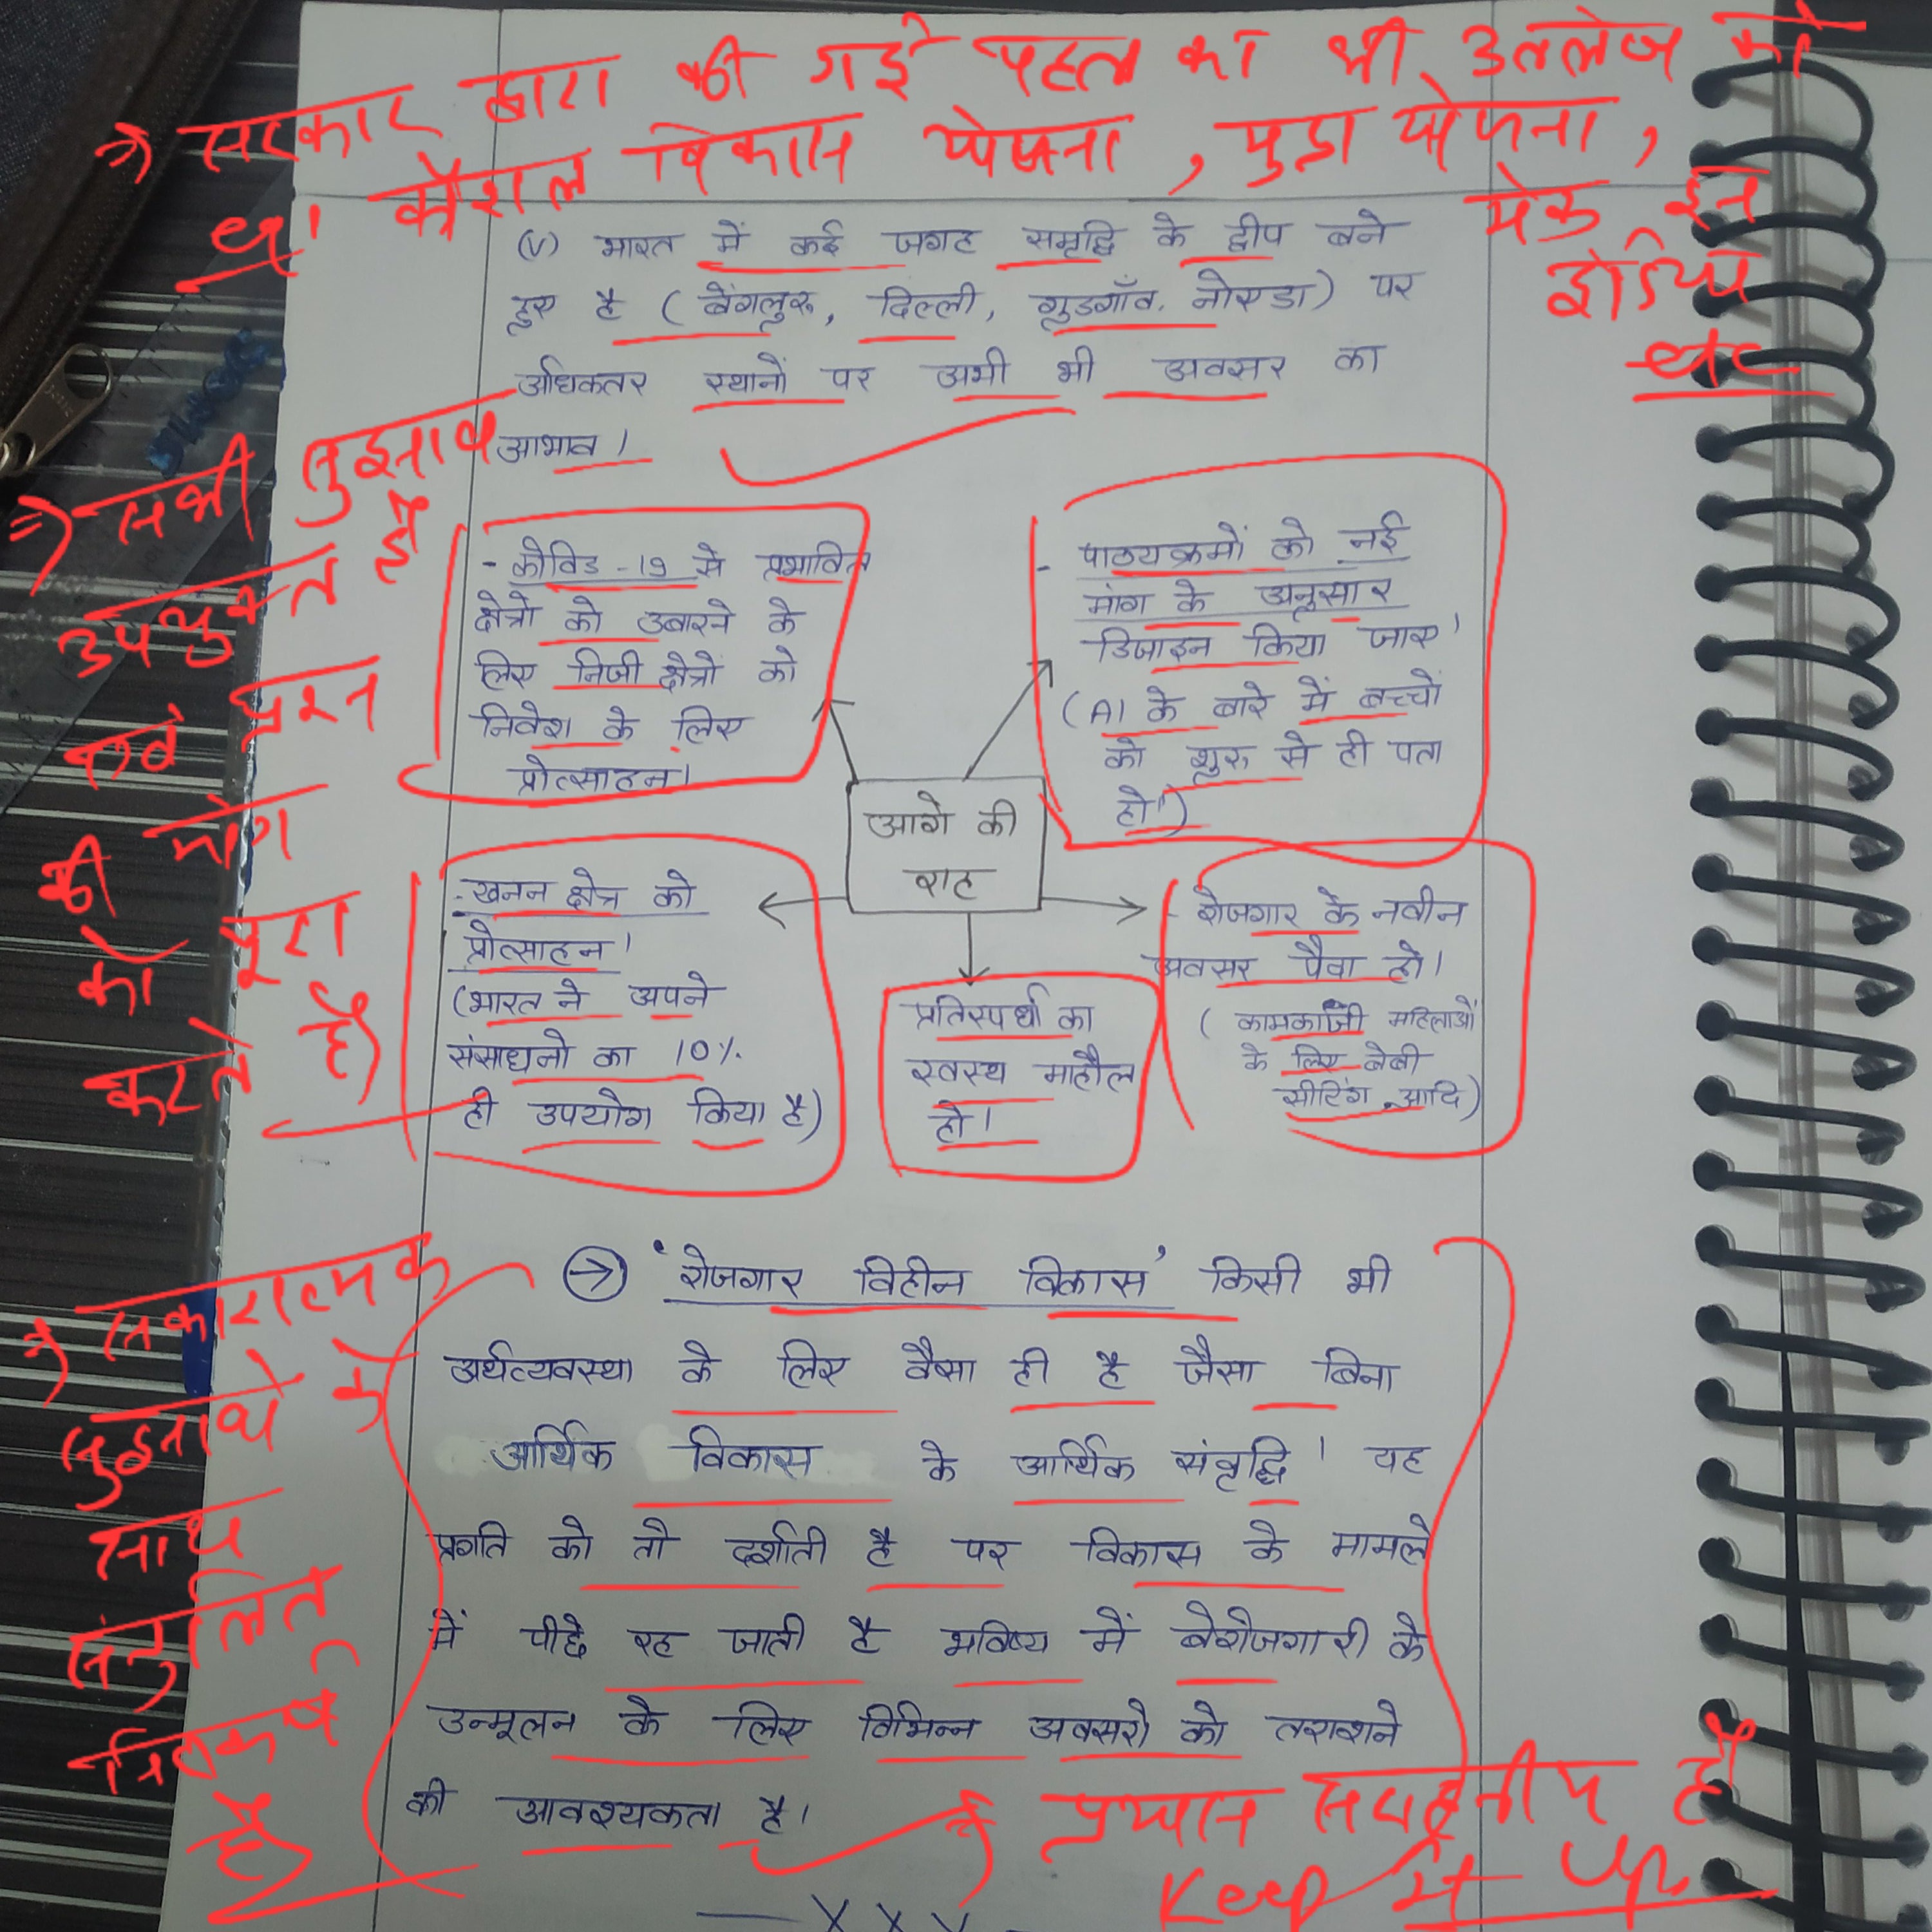 → सरकार द्वारा की गई पहल का भी उल्लेख करें
यथा कौशल विकास योजना, मुद्रा योजना,
मेक इन
इंडिया
etc
(v) भारत में कई जगह समृद्धि के द्वीप बने
हुए है (बेंगलुरु, दिल्ली, गुडगाँव, नोएडा) पर
अधिकतर स्थानों पर अभी भी अवसर का
आभाव।
⇒ सभी सुझाव
उपयुक्त हैं
एवं प्रश्न
की मांग
को पूरा
करते हैं
- कोविड -19 से प्रभावित
क्षेत्रो को उबारने के
लिए निजी क्षेत्रो को
निवेश के लिए
प्रोत्साहन।
- पाठयक्रमों को नई
मांग के अनुसार
डिजाइन किया जाए।
(AI के बारे में बच्चों
को शुरू से ही पता
हो।)
आगे की
राह
- खनन क्षेत्र को
प्रोत्साहन।
(भारत ने अपने
संसाधनो का 10%
ही उपयोग किया है)
प्रतिस्पर्धा का
स्वस्थ माहौल
हो।
- रोजगार के नवीन
अवसर पैदा हो।
(कामकाजी महिलाओं
के लिए बेबी
सीटिंग आदि)
→ 'रोजगार विहीन विकास' किसी भी
अर्थव्यवस्था के लिए वैसा ही है जैसा बिना
आर्थिक विकास के आर्थिक संवृद्धि। यह
प्रगति को तो दर्शाती है पर विकास के मामले
में पीछे रह जाती है भविष्य में बेरोजगारी के
उन्मूलन के लिए विभिन्न अवसरो को तराशने
की आवश्यकता है।
→ सकारात्मक
सुझावों के
साथ
संतुलित
निष्कर्ष
है
→ प्रयास सराहनीय है
Keep it up